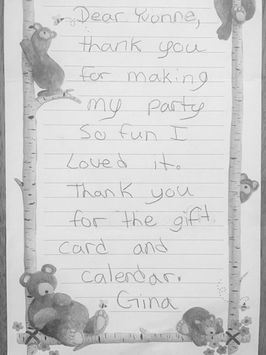 Dear Yvonne,
thank you
for making
my party
So fun I
Loved it.
Thank you
for the gift
card and
calerdar.
Gina